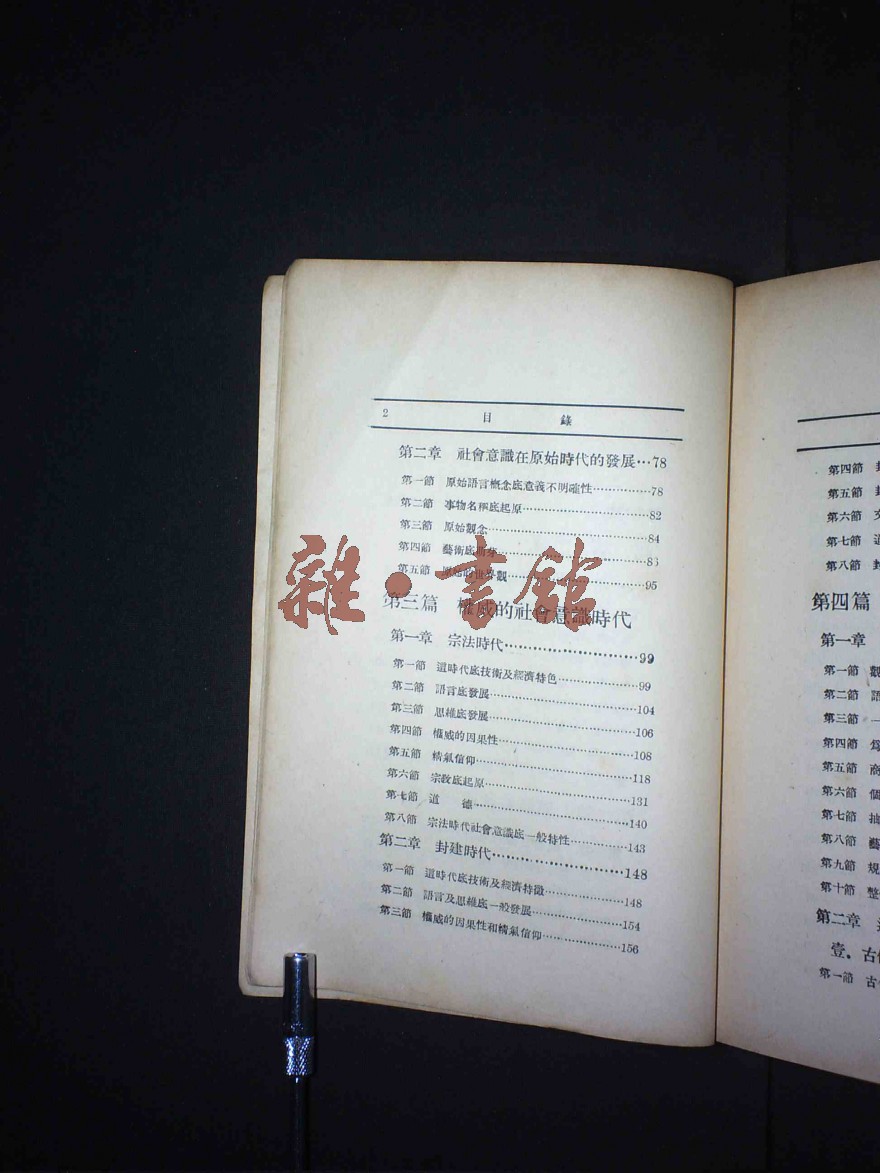 2 目錄
第二章 社會意識在原始時代的發展…78
第一節 原始語言概念底意義不明確性……………78
第二節 事物名稱底起原……………………82
第三節 原始觀念……………………84
第四節 藝術底萌芽……………………86
第五節 原始的世界觀……………………95
第三篇 權威的社會意識時代
第一章 宗法時代……………………99
第一節 這時代底技術及經濟特色……………99
第二節 語言底發展……………………104
第三節 思維底發展……………………106
第四節 權威的因果性……………………108
第五節 精氣信仰……………………118
第六節 宗教底起原……………………131
第七節 道 德……………………140
第八節 宗法時代社會意識底一般特性……………143
第二章 封建時代……………………148
第一節 這時代底技術及經濟特徵……………148
第二節 語言及思維底一般發展……………154
第三節 權威的因果性和精氣信仰……………156
雜·書館
第四節 封
第五節 封
第六節 交
第七節 道
第八節 封
第四篇
第一章
第一節 觀
第二節 語
第三節 一
第四節 爲
第五節 商
第六節 個
第七節 抽
第八節 藝
第九節 規
第十節 整
第二章
壹．古
第一節 古